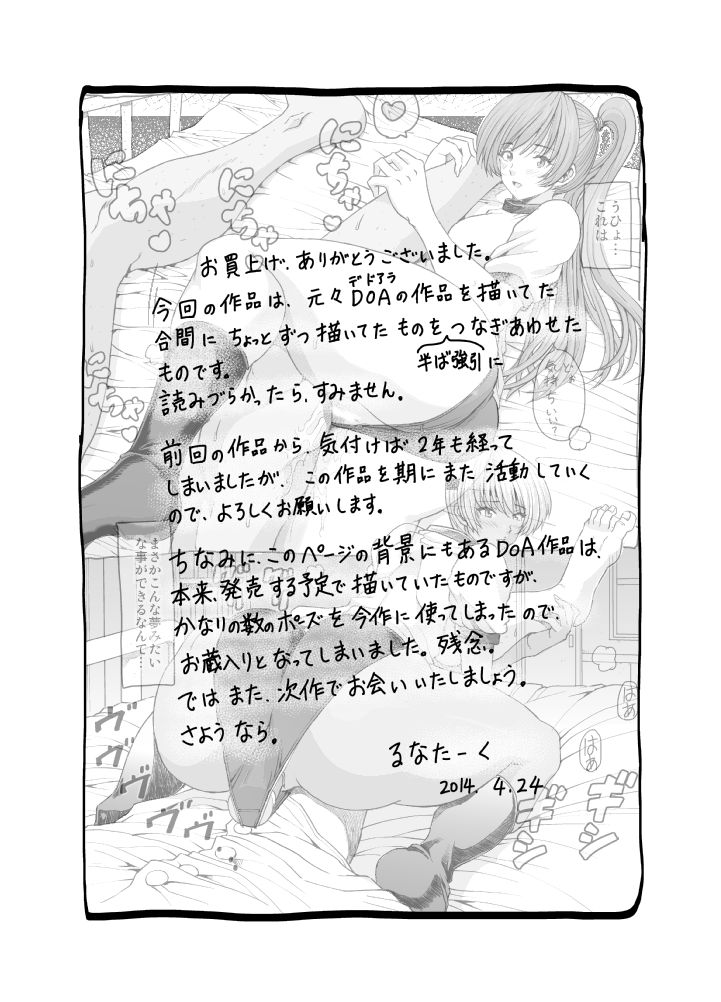 お買上げ、ありがとうございました。
今回の作品は、元々DOAの作品を描いてた
デドアラ
合間にちょっとずつ描いてたものをつなぎあわせた
半ば強引に
ものです。
読みづらかったら、すみません。
前回の作品から、気付けば2年も経って
しまいましたが、この作品を期にまた活動していく
ので、よろしくお願いします。
ちなみに、このページの背景にもあるDOA作品は、
本来、発売する予定で描いていたものですが、
かなりの数のポーズを今作に使ってしまったので、
お蔵入りとなってしまいました。残念。
ではまた、次作でお会いいたしましょう。
さようなら。
るなたーく
2014. 4.24